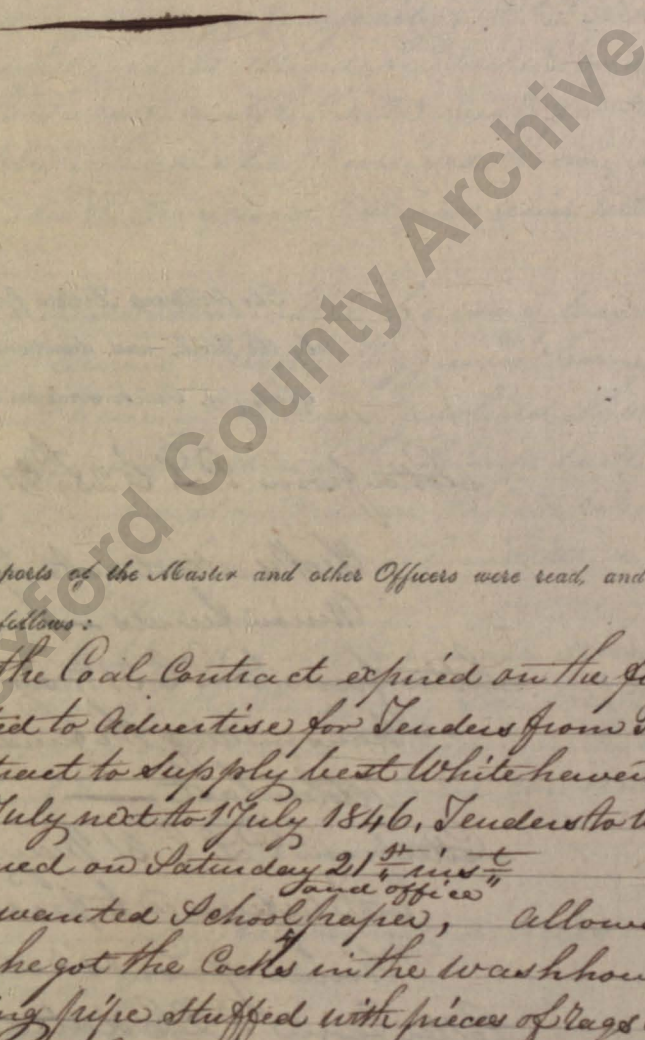 exford County Archive
ports of the Master and other Officers were read, and
follows:
the Coal Contract expired on the
ed to Advertise for Tenders from
tract to Supply best Whitehaven
July next to 1 July 1846, Tenders to
ned on Saturday 21st inst
and office
wanted School paper, allow
he got the Cocks in the washhou
ng pipe stuffed with pieces of rags